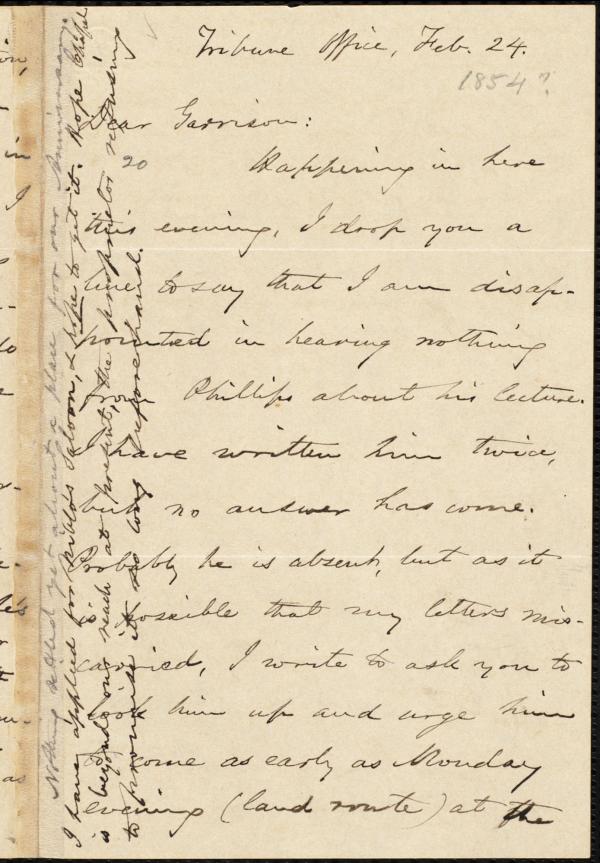 Tribune Office, Feb. 24.
1854?
Dear Garrison:
20
Happening in here
this evening, I drop you a
line to say that I am disap-
pointed in hearing nothing
from Phillips about his lecture.
I have written him twice,
but no answer has come.
Probably he is absent, but as it
is possible that my letters mis-
carried, I write to ask you to
look him up and urge him
to come as early as Monday
evening (land route) at the
Nothing settled yet about a place for our Anniversary.
I have applied for Niblo's Saloon, & hope to get it. Hope Chapel
is beyond our reach at present, the proprietor refusing
to promise it so long beforehand.